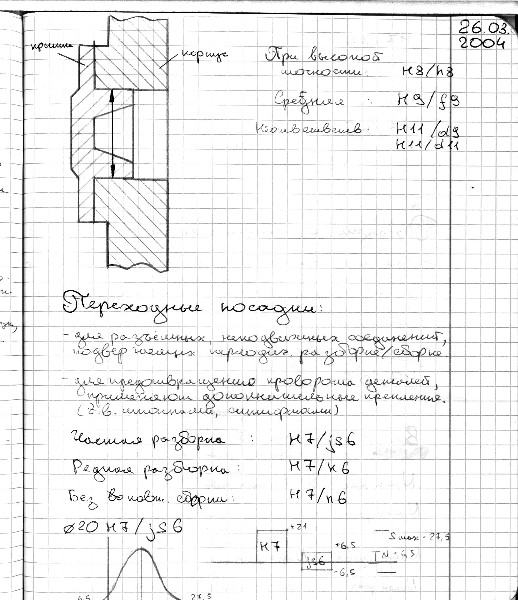 26.03.
2004
крышка
корпус
При высокой
точности: H8/h8
Средняя : H9/f9
H11/d9
H11/d11
Переходные посадки:
- для разъемных, неподвижных соединений,
подвер разборке/сборке
- для предотвращению проворота деталей,
применяют дополнительные крепление.
(z.B. штифтами)
Частая разборка : H7/js6
Редкая разборка : H7/k6
Без сборки: H7/n6
⌀20 H7/js6
H7
+21
js6
+6,5
-6,5
Smax = 27,5
27,5